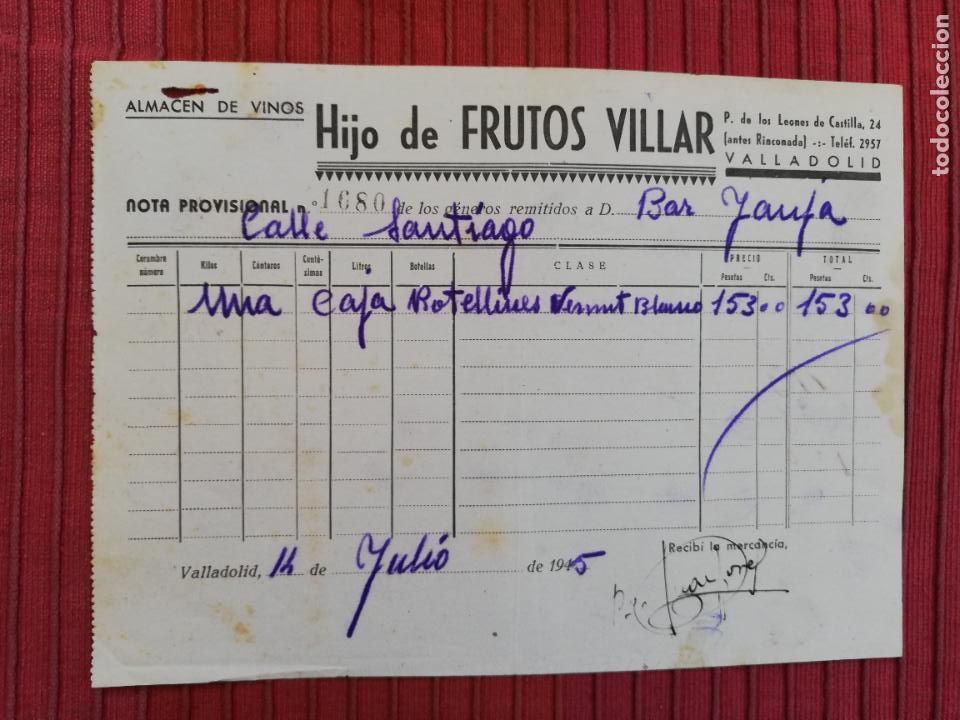 ALMACEN DE VINOS
Hijo de FRUTOS VILLAR
P. de los Leones de Castilla, 24
(antes Rinconada) -:- Teléf. 2957
VALLADOLID
NOTA PROVISIONAL n.º 1680 de los géneros remitidos a D. Bar
Calle Santiago
Corambre número Kilos Cántaros Centésimas Litros Botellas CLASE PRECIO TOTAL
Pesetas Cts. Pesetas Cts.
Una Caja Botellines Vermut Blanco 153 00 153 00
Valladolid, 14 de Julió de 1945
Recibí la mercancía,
todocoleccion